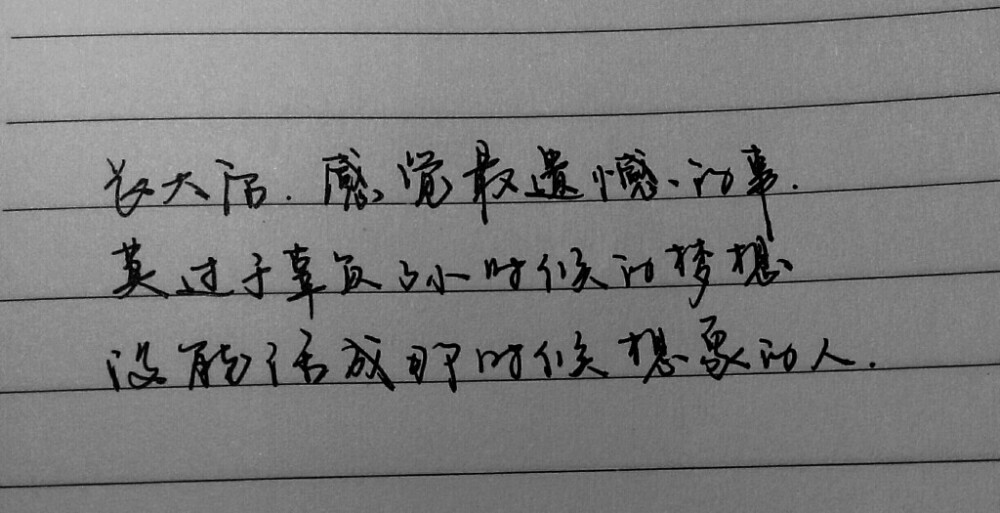 长大后.感觉最遗憾的事.
莫过于辜负了小时候的梦想
没能活成那时候想象的人.